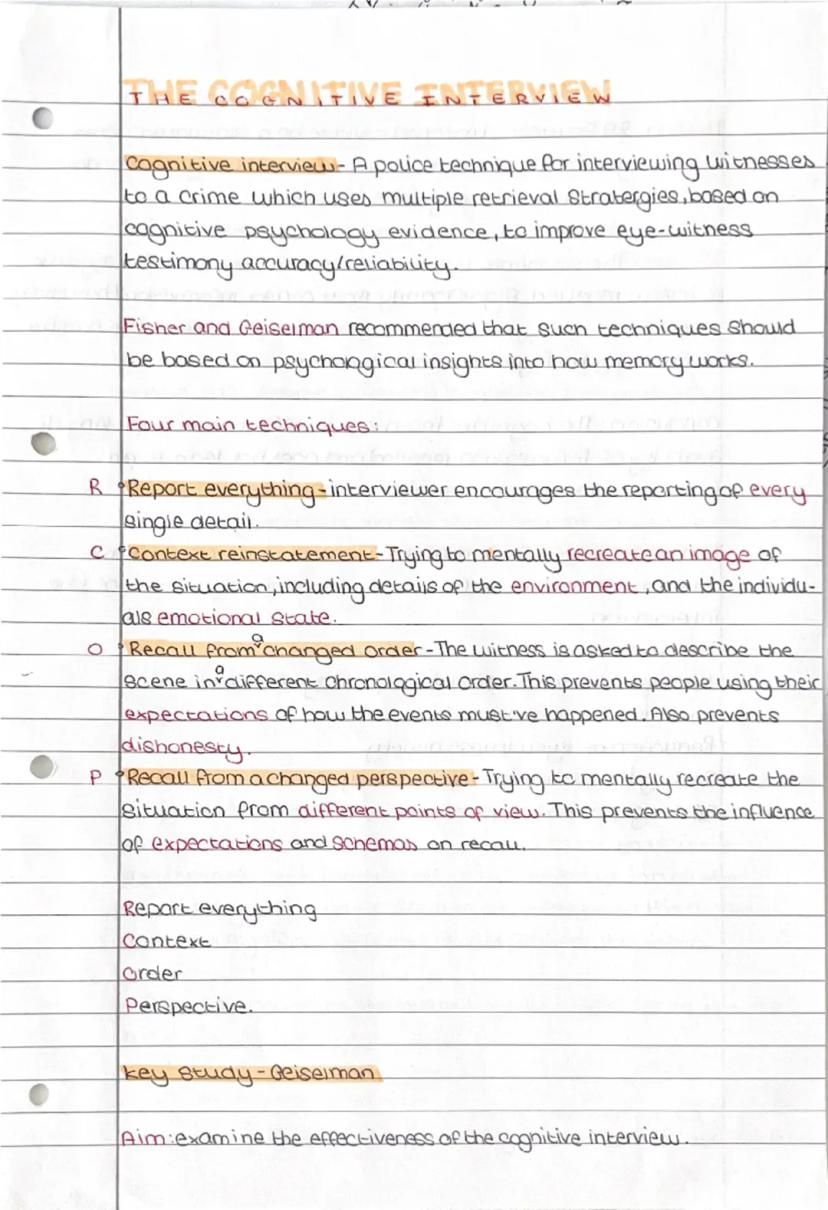 THE COGNITIVE INTERVIEW
Cognitive interview - A police technique for interviewing witnesses
to a crime which uses multiple retrieval stratergies, based on
cognitive psychology evidence, to improve eye-witness
testimony accuracy/reliability.
Fisher and Geiselman recommended that such techniques should
be based on psychological insights into how memory works.
Four main techniques:
R • Report everything - interviewer encourages the reporting of every
single detail.
C • Context reinstatement - Trying to mentally recreate an image of
the situation, including details of the environment, and the individu-
als emotional state.
O • Recall from a changed order - The witness is asked to describe the
scene in a different chronological order. This prevents people using their
expectations of how the events must've happened. Also prevents
dishonesty.
P • Recall from a changed perspective - Trying to mentally recreate the
situation from different points of view. This prevents the influence
of expectations and schemas on recall.
Report everything
Context
Order
Perspective.
Key study - Geiselman
Aim: examine the effectiveness of the cognitive interview.